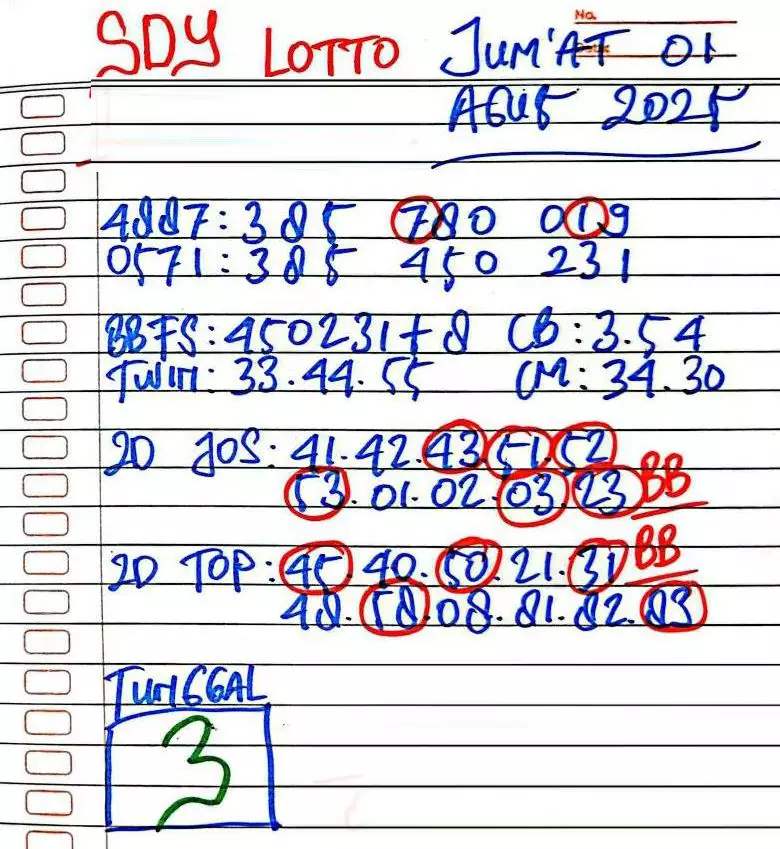 No.
SDY LOTTO JUM'AT 01
AGUS 2025
4887:385 780 019
0571:385 450 231
BBFS:450231+8 CB:3.54
TWIN:33.44.55 CM:34.30
2D JOS:41.42.43.51.52
53.01.02.03.23 BB
2D TOP:45.40.50.21.31 BB
48.58.08.81.82.83
TUNGGAL
3